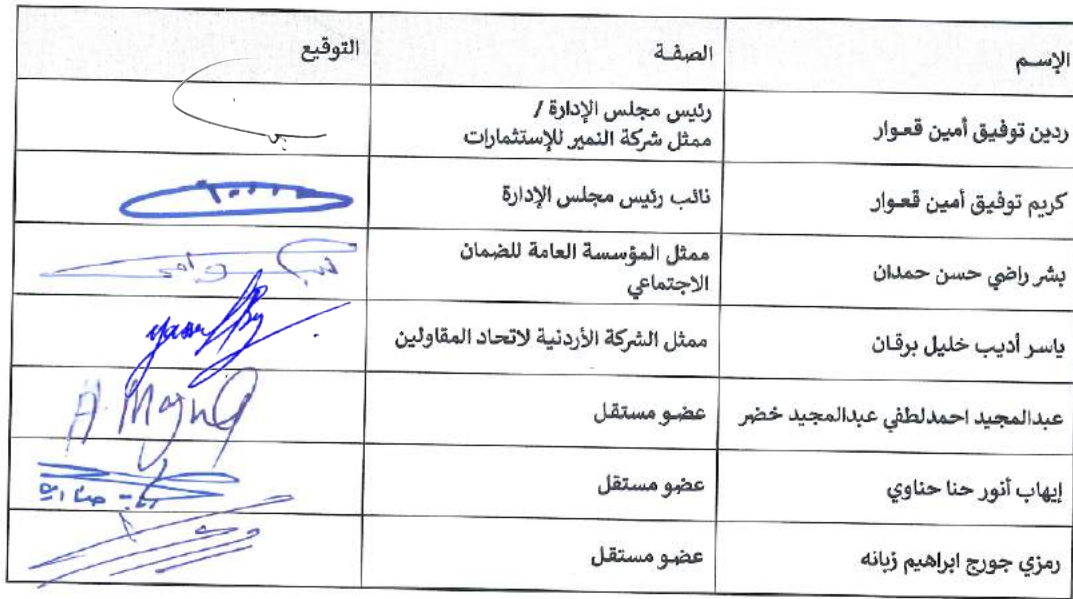 الإسـم الصفـة التوقيع
ردين توفيق أمين قعـوار رئيس مجلس الإدارة /
ممثل شركة النمير للإستثمارات
كريم توفيق أمين قعـوار نائب رئيس مجلس الإدارة
بشر راضي حسن حمدان ممثل المؤسسة العامة للضمان
الاجتماعي
ياسر أديب خليل برقـان ممثل الشركة الأردنية لاتحاد المقاولين
عبدالمجيد احمدلطفي عبدالمجيد خضر عضـو مستقل
إيهاب أنور حنا حناوي عضـو مستقل
رمزي جورج ابراهيم زبانه عضـو مستقل